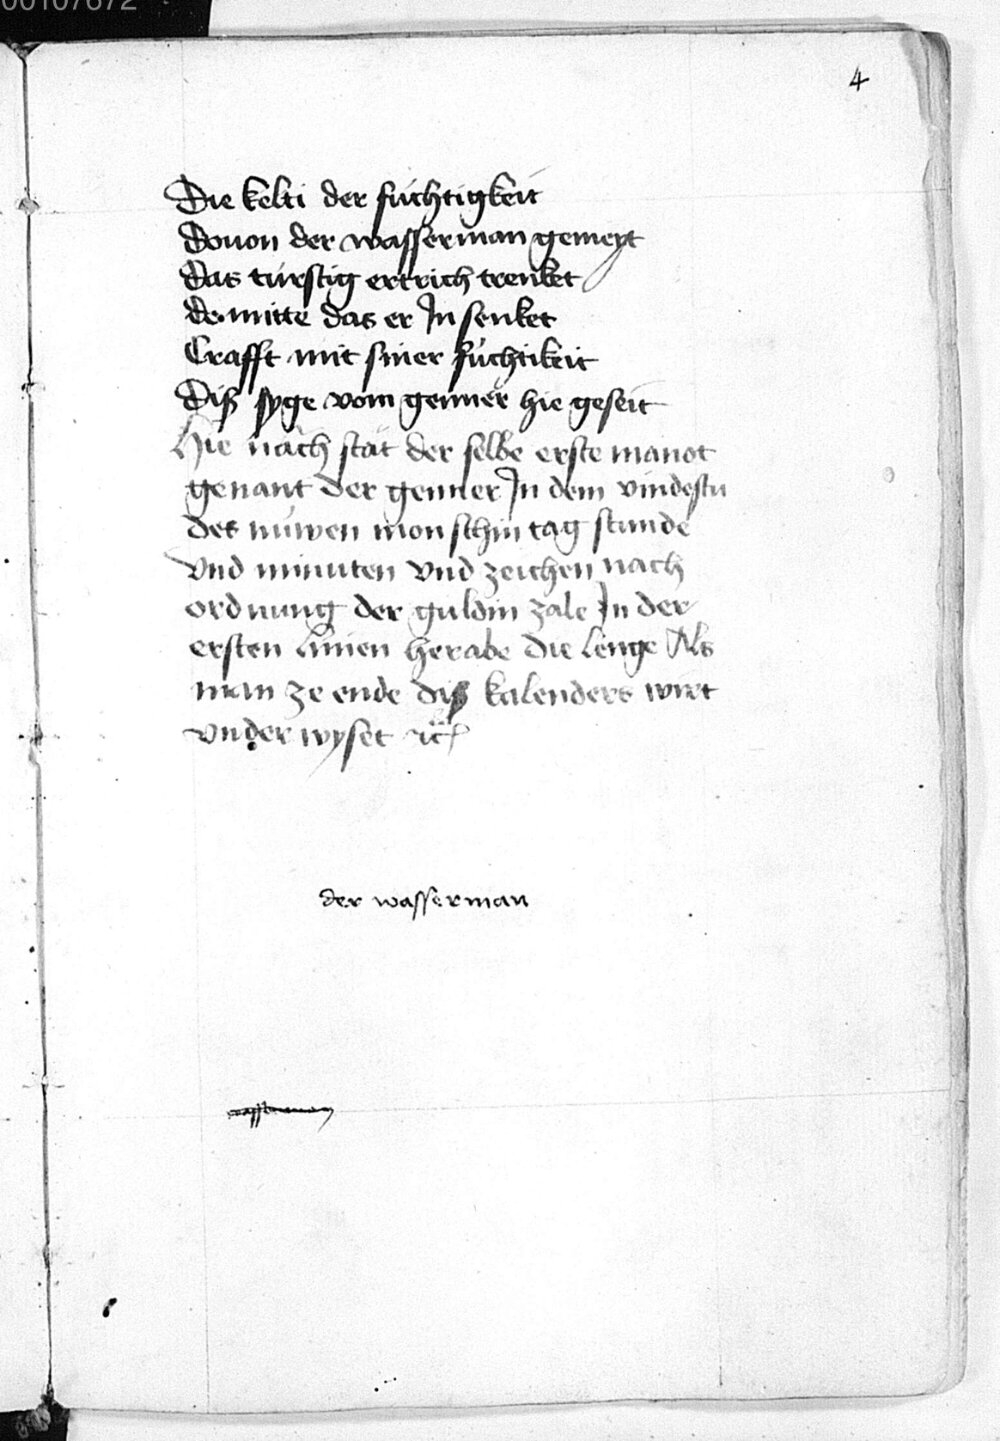 00107672
4
Die kelti der füchtigkeit
Douon der wasserman gemeyt
Das türstig ertrich trenket
do mitte das er In senket
Crafft mit siner füchtikeit
Diß syge vom genner hie geseit
Hie nâch stât der selbe erste manot
genant der genner In dem vindestu
des nüwen mon schin tag stunde
vnd minuten vnd zeichen nach
ordnung der guldin zale In der
ersten linien herabe die lenge Als
man ze ende diß kalenders wirt
vnder wyset ꝛc
der wasserman
wasserman